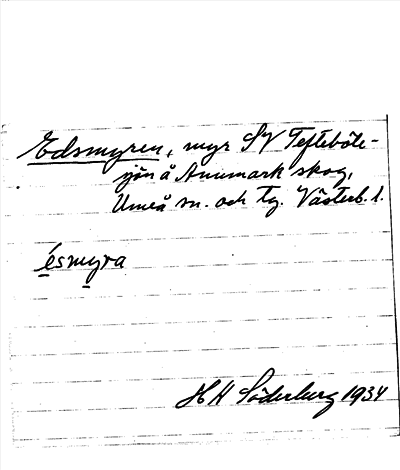 Edsmyren, myr SV Tefteböle-
sjön å Anumark skog,
Umeå sn. och tg. Västerb. l.
ésmyra
HH Söderberg 1934